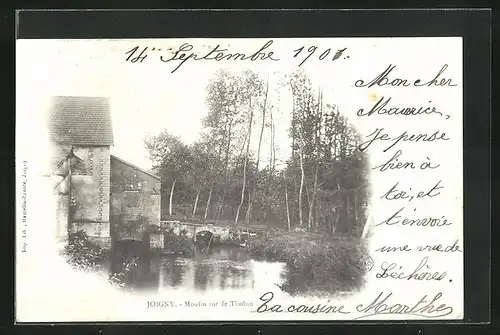 14 Septembre 1901.
Mon cher
Maurice,
Je pense
bien à
toi, et
t'envoie
une vue de
Léchères.
Ta cousine Marthe
JOIGNY. - Moulin sur le Tholon